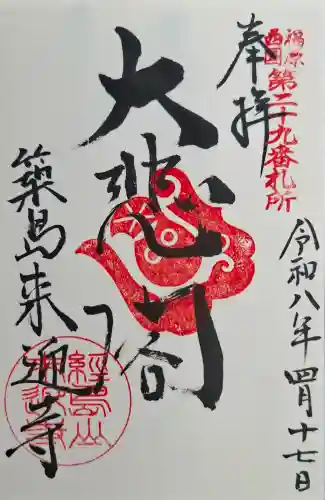 奉拝
福原
西国
第二十九番札所
令和八年四月十七日
大悲閣
築島来迎寺
經島山